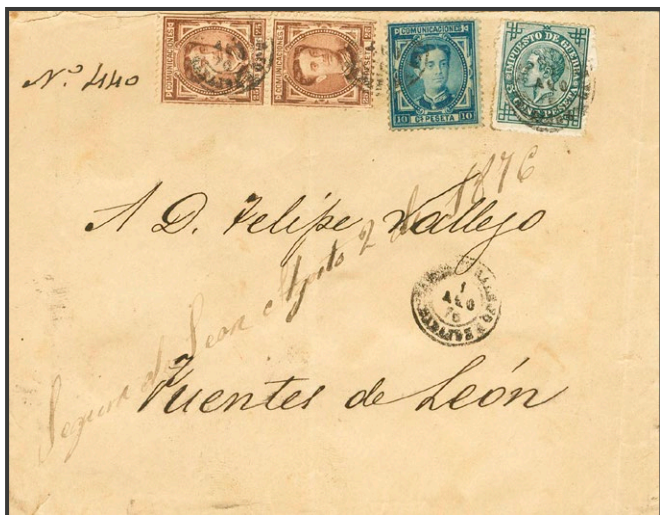 COMUNICACIONES
COMUNICACIONES
COMUNICACIONES
10 Cs PESETA 10
IMPUESTO DE GUERRA
5 CENT PESETA
Nº 440
A D. Felipe Vallejo
Segura de Leon Agosto 2 de 1876
1
AGO
76
Fuentes de León